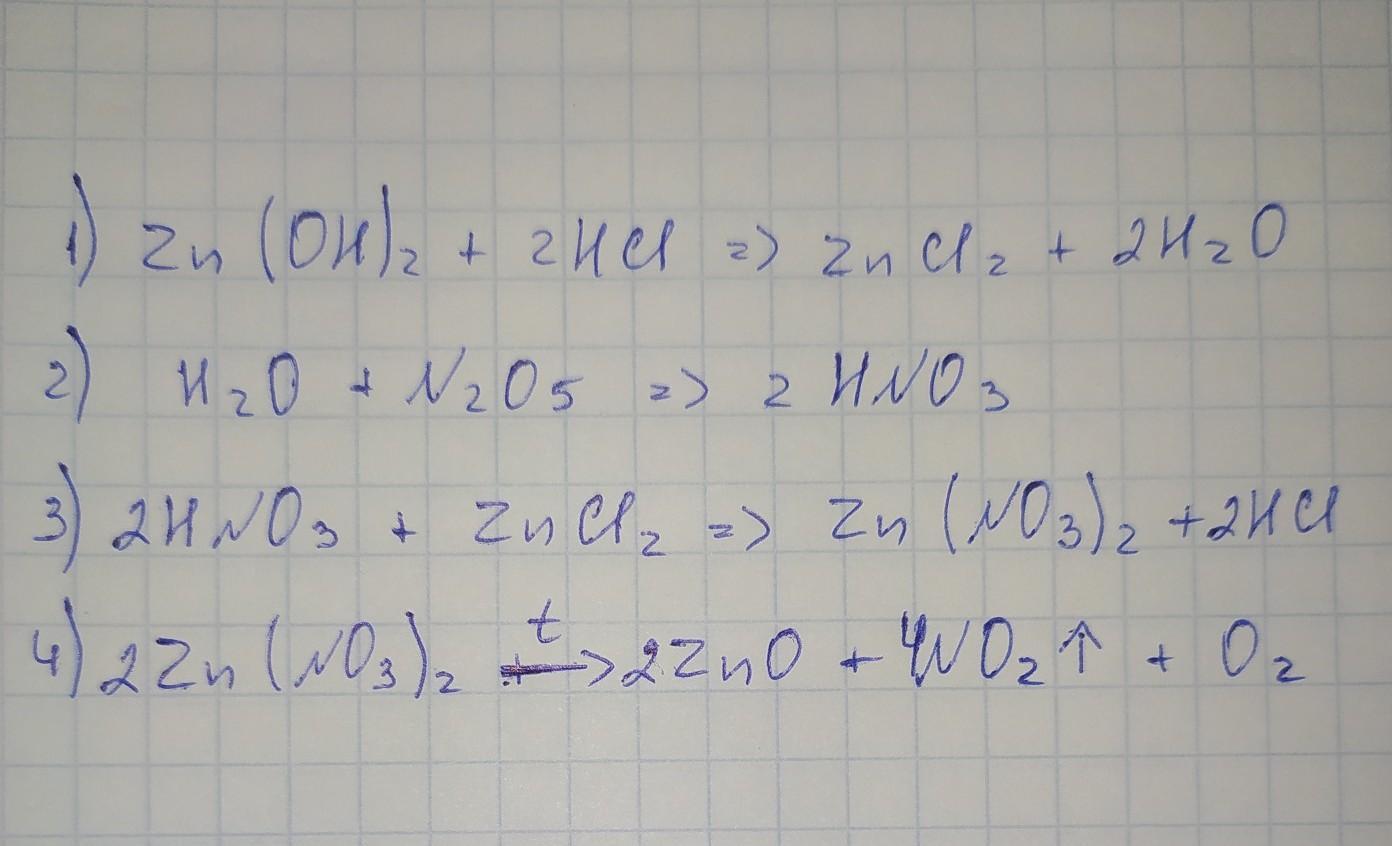 1) Zn(OH)₂ + 2HCl => ZnCl₂ + 2H₂O
2) H₂O + N₂O₅ => 2HNO₃
3) 2HNO₃ + ZnCl₂ => Zn(NO₃)₂ + 2HCl
4) 2Zn(NO₃)₂ t→ 2ZnO + 4NO₂↑ + O₂